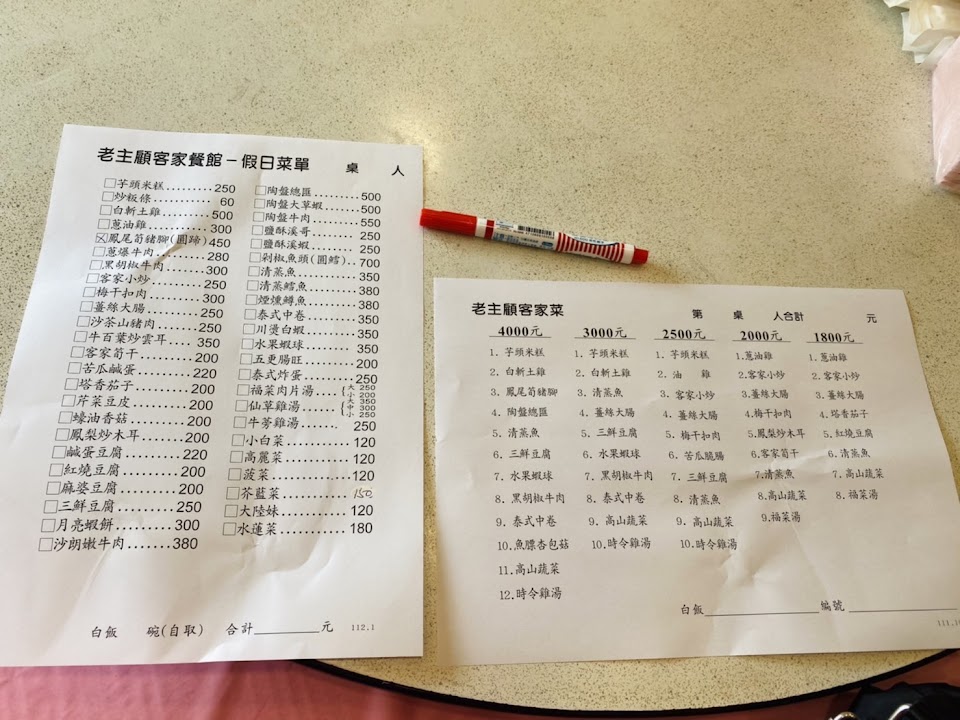 老主顧客家餐館－假日菜單 桌 人
□芋頭米糕.........250
□炒粄條.........60
□白斬土雞.........500
□蔥油雞.........300
☒鳳尾筍豬腳(圓蹄)450
□蔥爆牛肉.........280
□黑胡椒牛肉.......300
□客家小炒.........250
□梅干扣肉.........300
□薑絲大腸.........250
□沙茶山豬肉.......250
□牛百葉炒雲耳... 350
□客家筍干.........200
□苦瓜鹹蛋.........220
□塔香茄子.........200
□芹菜豆皮.........200
□蠔油香菇.........200
□鳳梨炒木耳.......200
□鹹蛋豆腐.........220
□紅燒豆腐.........200
□麻婆豆腐.........200
□三鮮豆腐.........250
□月亮蝦餅.........300
□沙朗嫩牛肉.......380
□陶盤總匯.........500
□陶盤大草蝦.......500
□陶盤牛肉.........550
□鹽酥溪哥.........250
□鹽酥溪蝦.........250
□剁椒魚頭(圓鱈)..700
□清蒸魚...........350
□清蒸鱈魚.........380
□煙燻鱒魚.........380
□泰式中卷.........350
□川燙白蝦.........350
□水果蝦球.........350
□五更腸旺.........200
□泰式炸蛋.........250
□福菜肉片湯...大 250 小 200
□仙草雞湯....大 350 中 300 小 250
□牛蒡雞湯....... 250
□小白菜...........120
□高麗菜...........120
□菠菜.............120
□芥藍菜...........150
□大陸妹...........120
□水蓮菜...........180
白飯 碗(自取) 合計 元 112.1
老主顧客家菜 第 桌 人合計 元
4000元
1. 芋頭米糕
2. 白斬土雞
3. 鳳尾筍豬腳
4. 陶盤總匯
5. 清蒸魚
6. 三鮮豆腐
7. 水果蝦球
8. 黑胡椒牛肉
9. 泰式中卷
10.魚膘杏包菇
11.高山蔬菜
12.時令雞湯
3000元
1. 芋頭米糕
2. 白斬土雞
3. 清蒸魚
4. 薑絲大腸
5. 三鮮豆腐
6. 水果蝦球
7. 黑胡椒牛肉
8. 泰式中卷
9. 高山蔬菜
10.時令雞湯
2500元
1. 芋頭米糕
2. 油 雞
3. 客家小炒
4. 薑絲大腸
5. 梅干扣肉
6. 苦瓜脆腸
7. 三鮮豆腐
8. 清蒸魚
9. 高山蔬菜
10.時令雞湯
2000元
1.蔥油雞
2.客家小炒
3.薑絲大腸
4.梅干扣肉
5.鳳梨炒木耳
6.客家筍干
7.清蒸魚
8.高山蔬菜
9.福菜湯
1800元
1.蔥油雞
2.客家小炒
3.薑絲大腸
4.塔香茄子
5.紅燒豆腐
6.清蒸魚
7.高山蔬菜
8.福菜湯
白飯 編號